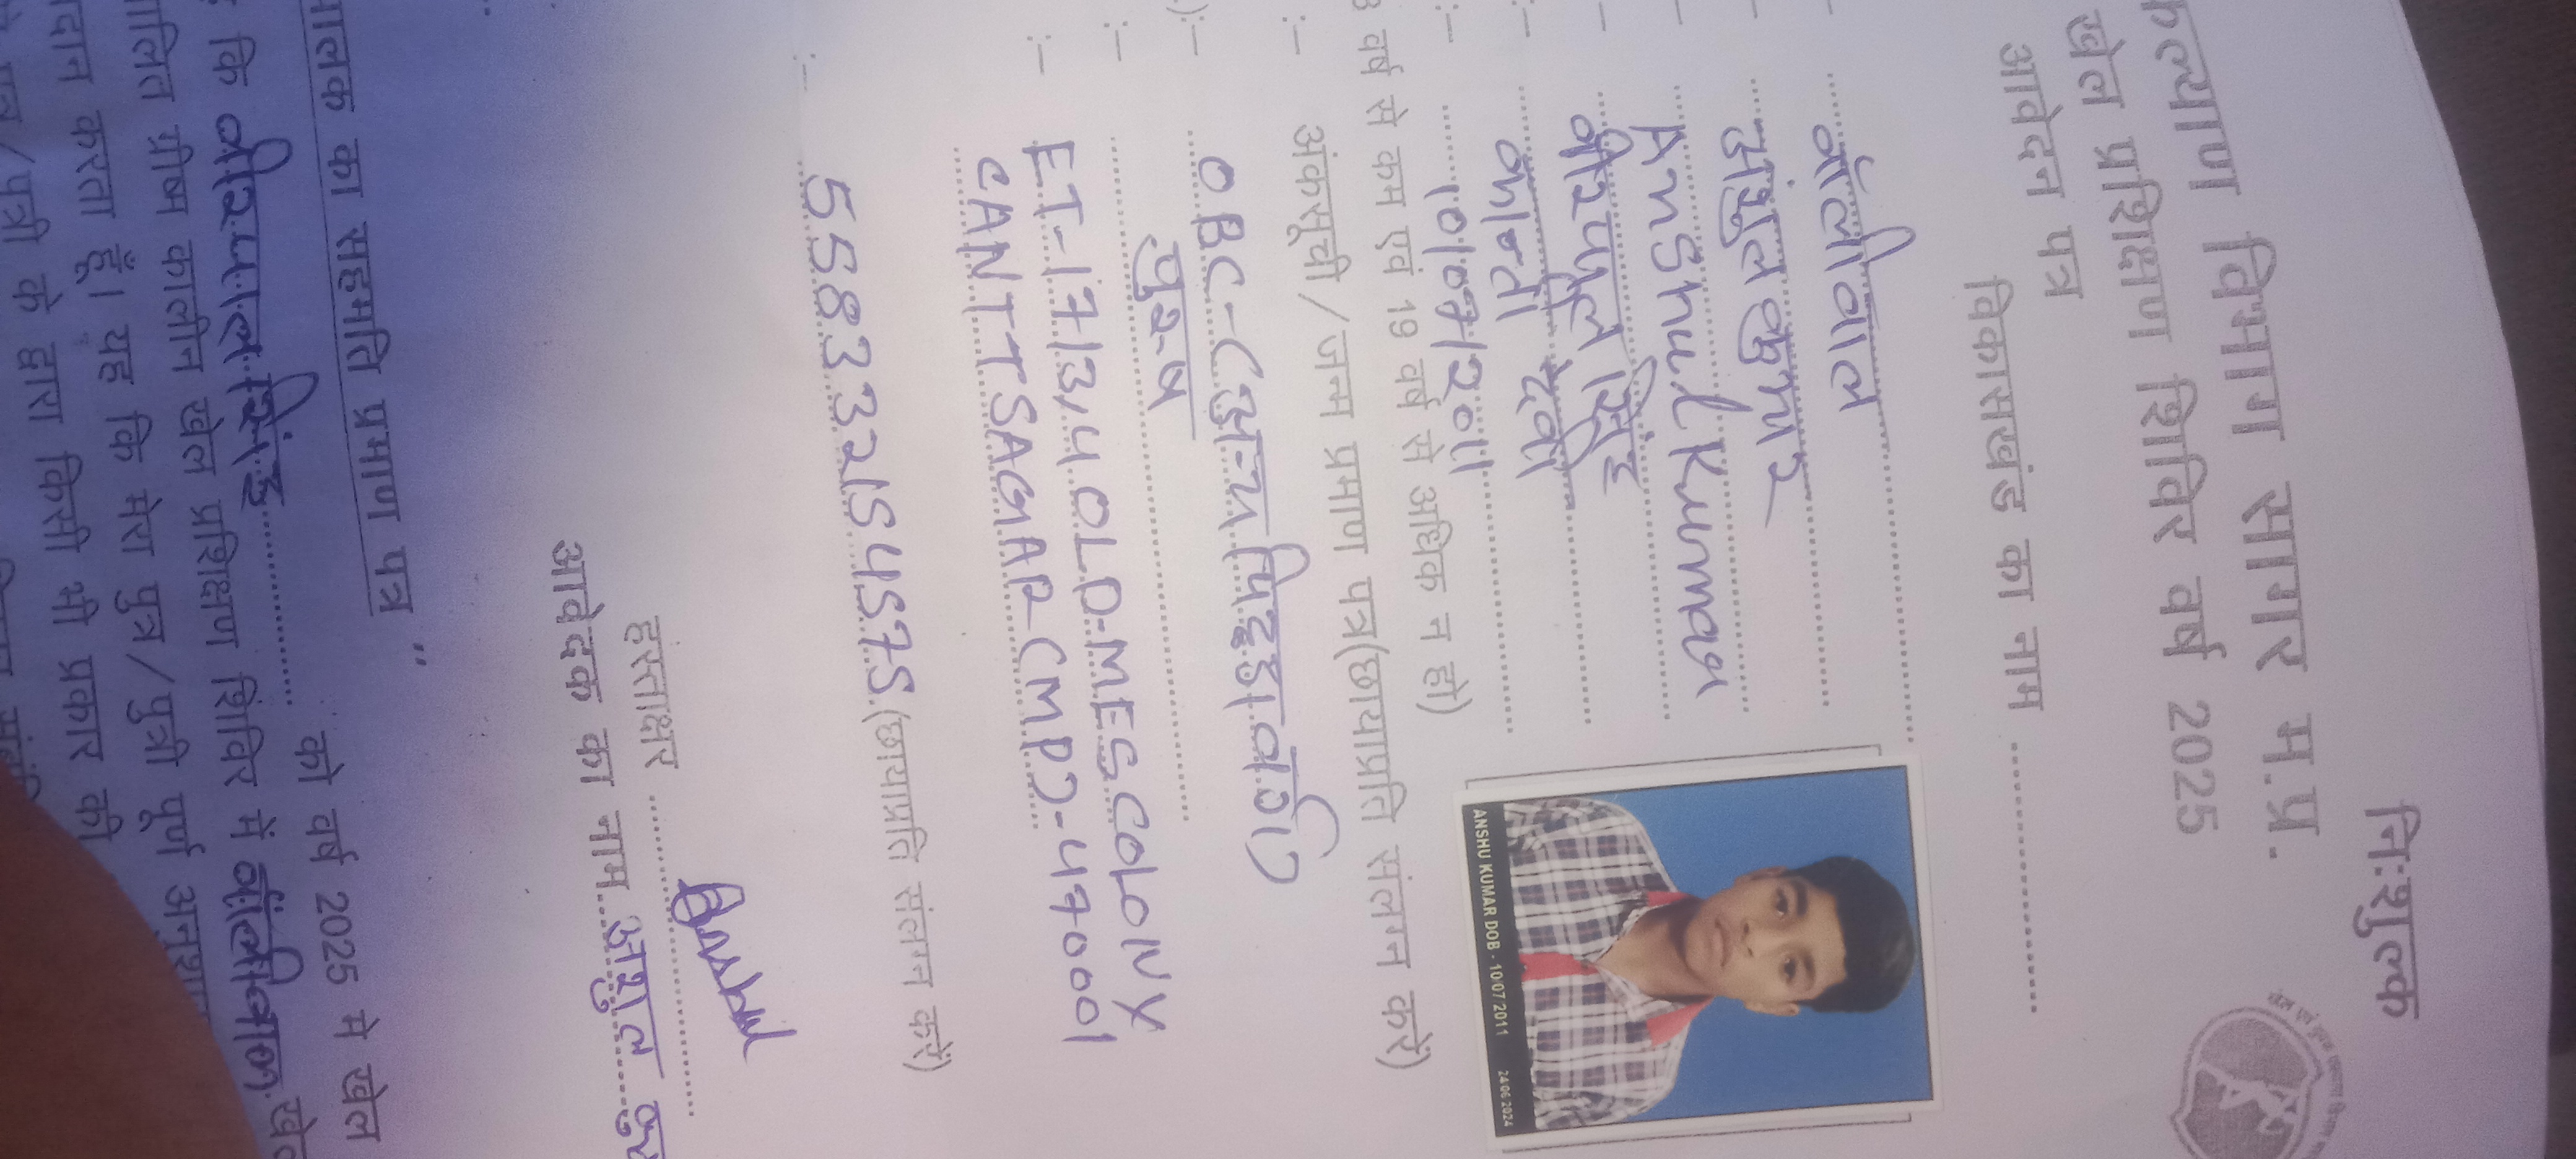 निःशुल्क
कल्याण विभाग सागर म.प्र.
खेल प्रशिक्षण शिविर वर्ष 2025
आवेदन पत्र
विकासखंड का नाम
:– वॉलीवाल
:– अंशुल कुमार
:– Anshul Kumar
:– वीरपाल सिंह
:– कान्ती देवी
:– 10/07/2011
वर्ष से कम एवं 19 वर्ष से अधिक न हो)
:– अंकसूची / जन्म प्रमाण पत्र(छायाप्रति संलग्न करें)
):– OBC-(अन्य पिछडा वर्ग)
:– पुरुष
:– ET-17/3,4 OLD-MES COLONY
CANTT SAGAR-(MP)-470001
:– 558332154575 (छायाप्रति संलग्न करें)
हस्ताक्षर
आवेदक का नाम अंशुल
ANSHU KUMAR DOB - 10 07 2011
24 06 2024
पालक का सहमति प्रमाण पत्र "
कि वीरपाल सिंह को वर्ष 2025 मे खेल
ग्रीष्म कालीन खेल प्रशिक्षण शिविर में वॉलीवाल
करता हूँ। यह कि मेरा पुत्र/पुत्री पूर्ण
/पुत्री के द्वारा किसी भी प्रकार की